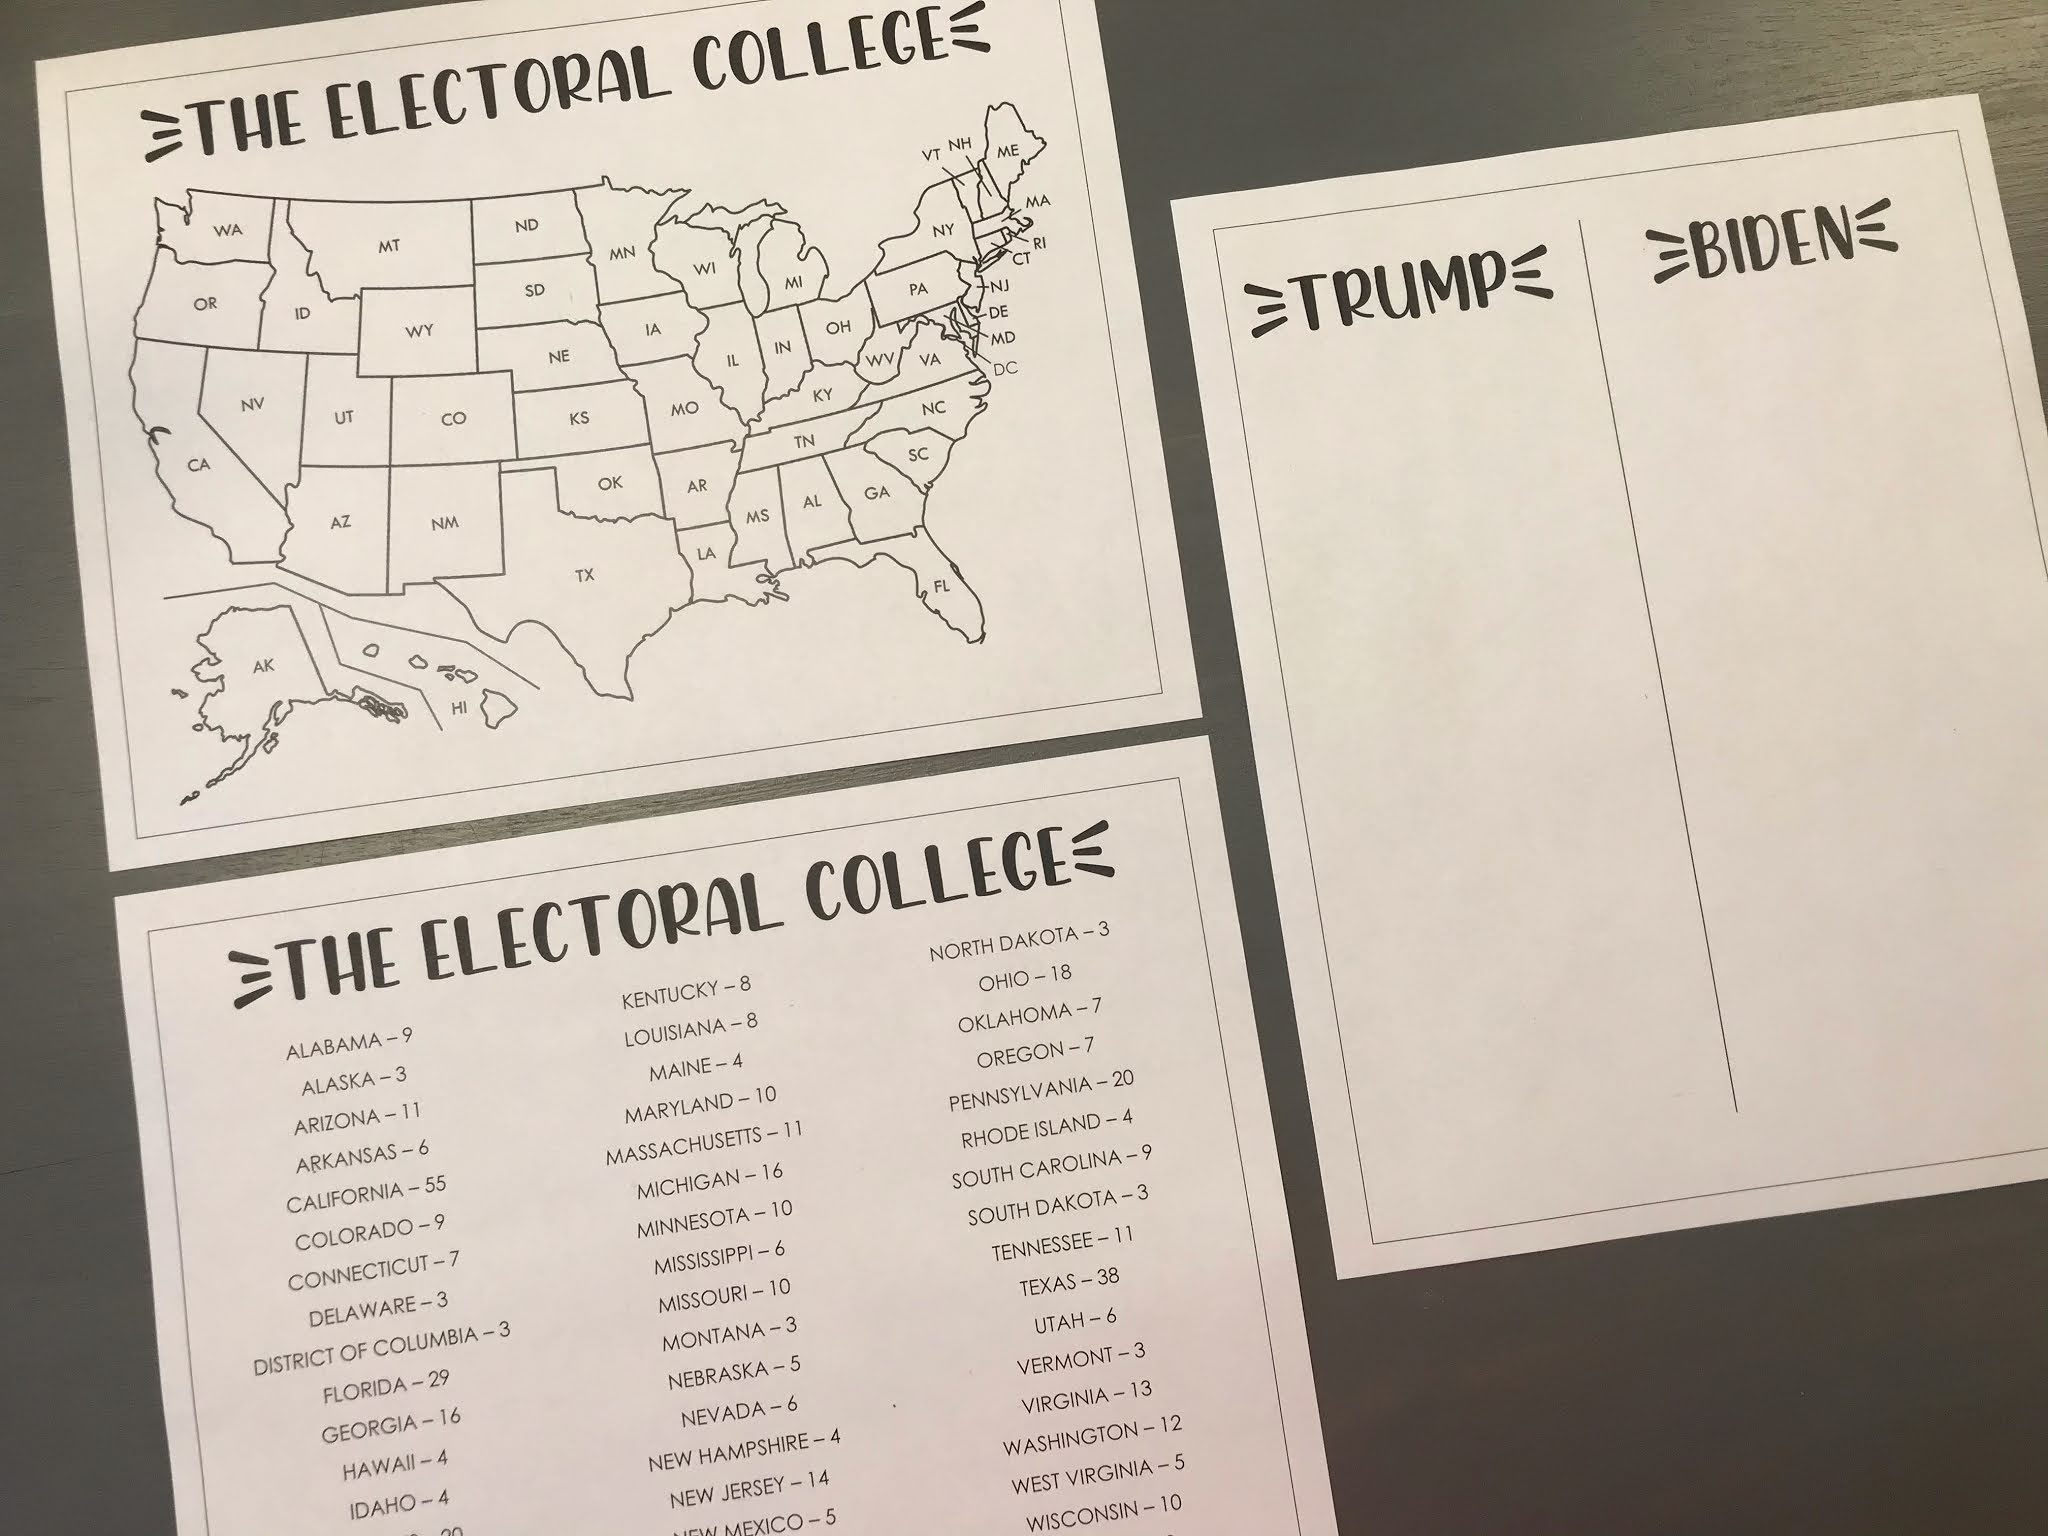 THE ELECTORAL COLLEGE
WA
OR
CA
ID
NV
MT
WY
UT
CO
AZ
NM
ND
SD
NE
KS
OK
TX
MN
IA
MO
AR
LA
WI
IL
MI
IN
OH
KY
TN
MS
AL
GA
FL
SC
NC
VA
WV
PA
NY
VT
NH
ME
MA
RI
CT
NJ
DE
MD
DC
AK
HI
TRUMP
BIDEN
THE ELECTORAL COLLEGE
ALABAMA – 9
ALASKA – 3
ARIZONA – 11
ARKANSAS – 6
CALIFORNIA – 55
COLORADO – 9
CONNECTICUT – 7
DELAWARE – 3
DISTRICT OF COLUMBIA – 3
FLORIDA – 29
GEORGIA – 16
HAWAII – 4
IDAHO – 4
20
KENTUCKY – 8
LOUISIANA – 8
MAINE – 4
MARYLAND – 10
MASSACHUSETTS – 11
MICHIGAN – 16
MINNESOTA – 10
MISSISSIPPI – 6
MISSOURI – 10
MONTANA – 3
NEBRASKA – 5
NEVADA – 6
NEW HAMPSHIRE – 4
NEW JERSEY – 14
NEW MEXICO – 5
NORTH DAKOTA – 3
OHIO – 18
OKLAHOMA – 7
OREGON – 7
PENNSYLVANIA – 20
RHODE ISLAND – 4
SOUTH CAROLINA – 9
SOUTH DAKOTA – 3
TENNESSEE – 11
TEXAS – 38
UTAH – 6
VERMONT – 3
VIRGINIA – 13
WASHINGTON – 12
WEST VIRGINIA – 5
WISCONSIN – 10